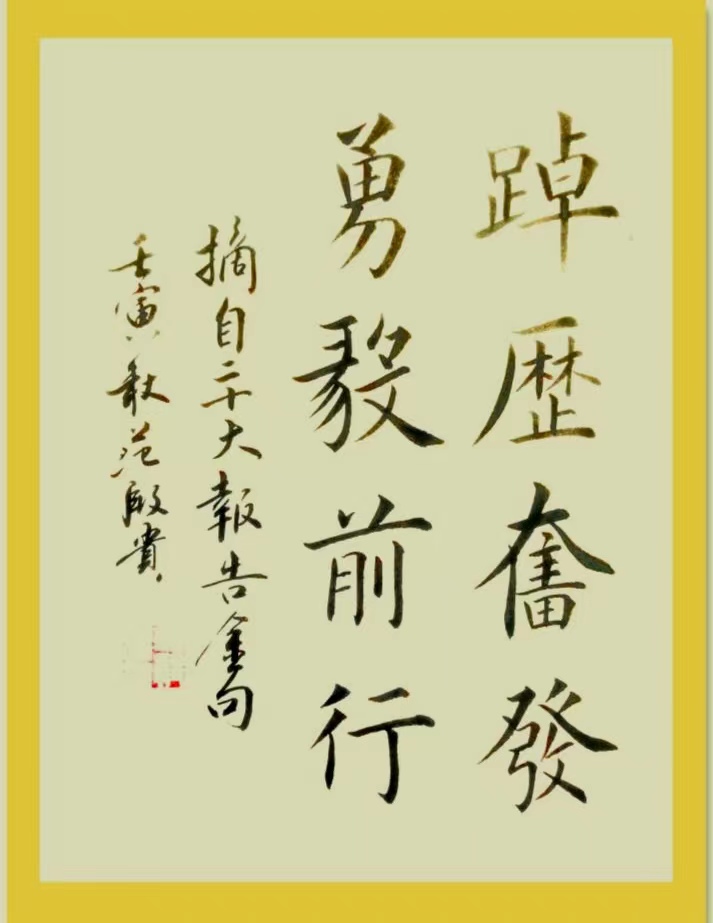 踔歴奮發
勇毅前行
摘自二十大報告金句
壬寅秋范貴